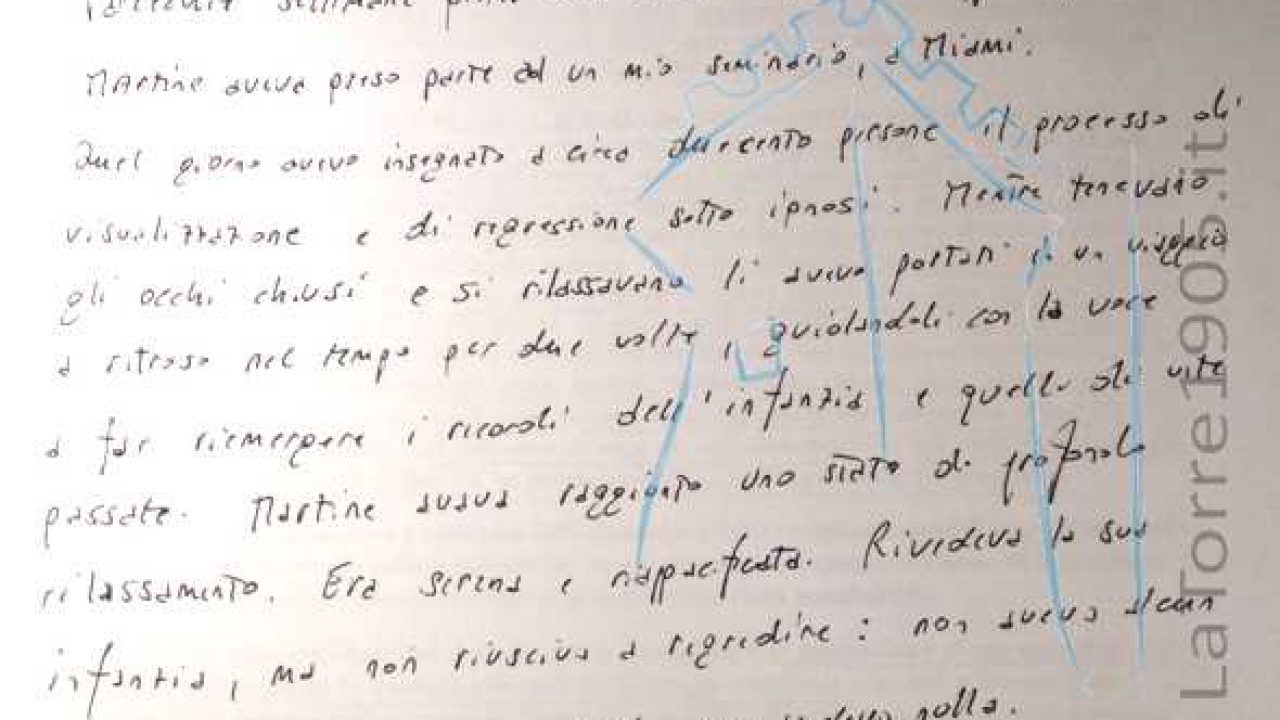 settimane
Martine aveva preso parte ad un mio seminario, a Miami.
Quel giorno avevo insegnato a circa duecento persone il processo di
visualizzazione e di regressione sotto ipnosi. Mentre tenevano
gli occhi chiusi e si rilassavano li avevo portati in un viaggio
a ritroso nel tempo per due volte, guidandoli con la voce
a far riemergere i ricordi dell'infanzia e quelli di vite
passate. Martine aveva raggiunto uno stato di profondo
rilassamento. Era serena e rappacificata. Rivedeva la sua
infanzia, ma non riusciva a regredire: non aveva alcun
nulla.
LaTorre1905.it